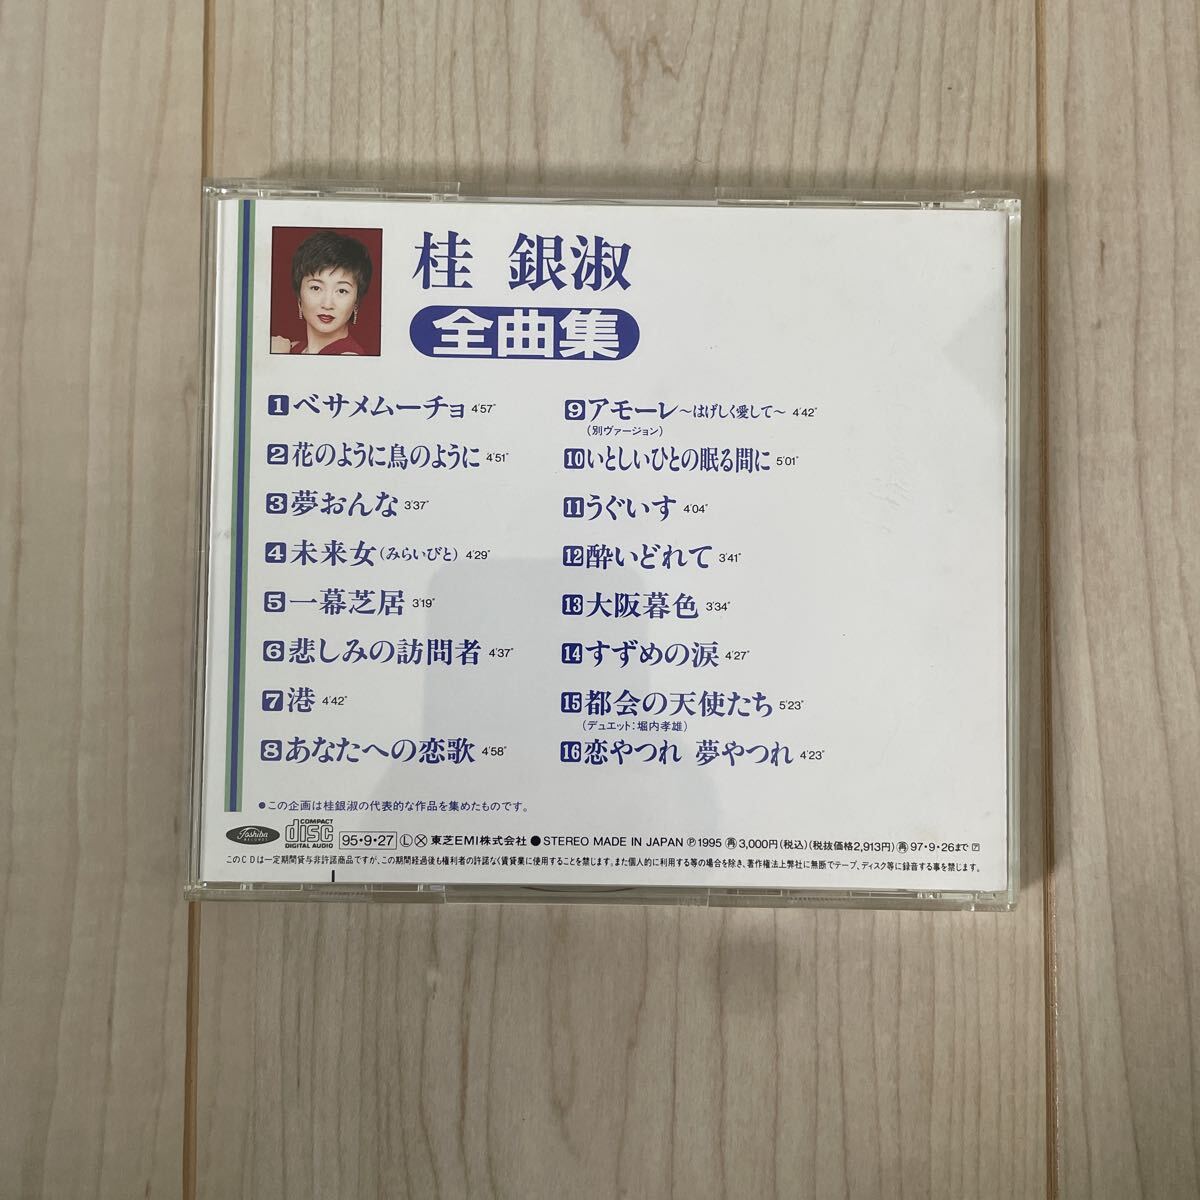 桂 銀淑
全曲集
1 ベサメムーチョ 4'57"
2 花のように鳥のように 4'51"
3 夢おんな 3'37"
4 未来女(みらいびと) 4'29"
5 一幕芝居 3'19"
6 悲しみの訪問者 4'37"
7 港 4'42"
8 あなたへの恋歌 4'58"
9 アモーレ〜はげしく愛して〜 4'42"
(別ヴァージョン)
10 いとしいひとの眠る間に 5'01"
11 うぐいす 4'04"
12 酔いどれて 3'41"
13 大阪暮色 3'34"
14 すずめの涙 4'27"
15 都会の天使たち 5'23"
(デュエット:堀内孝雄)
16 恋やつれ 夢やつれ 4'23"
●この企画は桂銀淑の代表的な作品を集めたものです。
Toshiba RECORDS COMPACT disc DIGITAL AUDIO 95・9・27 Ⓛ ⓧ 東芝EMI株式会社 ●STEREO MADE IN JAPAN Ⓟ1995 ㊢3,000円(税込)(税抜価格2,913円)㊢97・9・26まで
このCDは一定期間貸与非許諾商品ですが、この期間経過後も権利者の許諾なく賃貸業に使用することを禁じます。また個人的に利用する等の場合を除き、著作権法上弊社に無断でテープ、ディスク等に録音する事を禁じます。